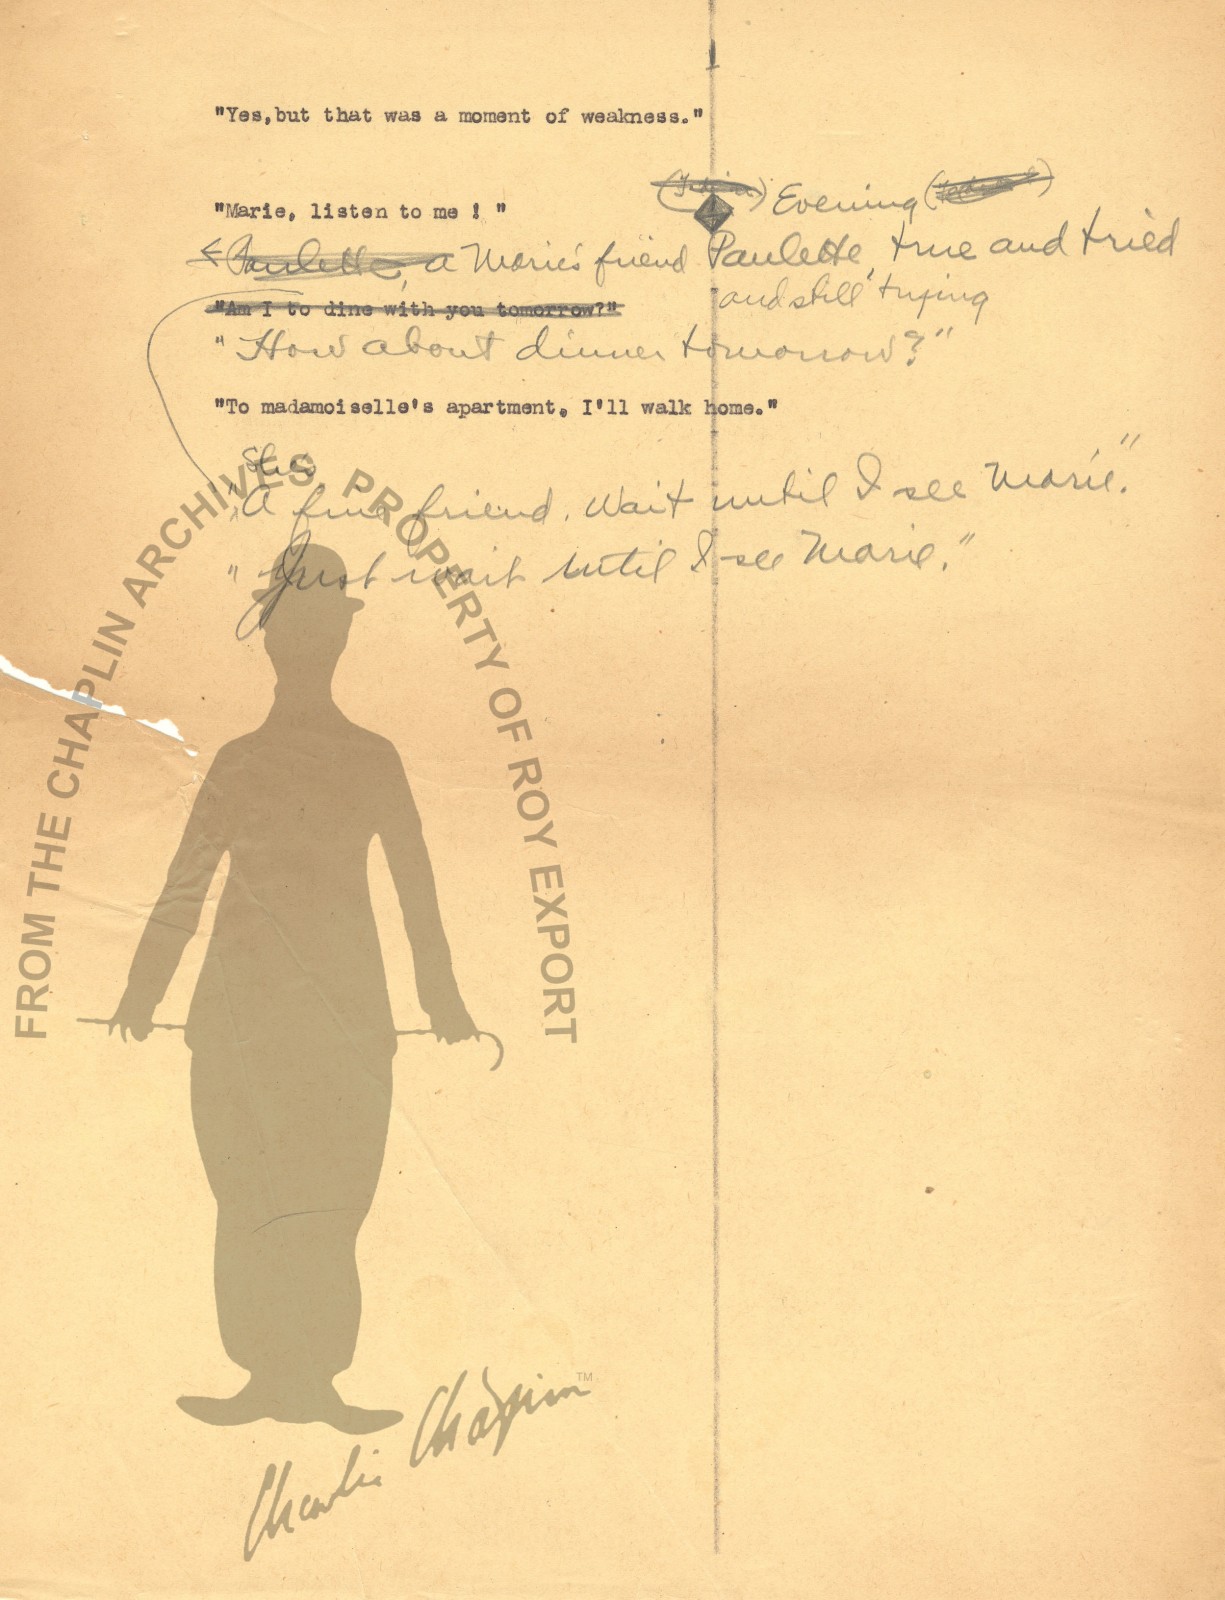 "Yes,but that was a moment of weakness."
Evening
"Marie, listen to me ! "
Paulette, a Marie's friend Paulette, true and tried
and still trying
"Am I to dine with you tomorrow?"
"How about dinner tomorrow?"
"To madamoiselle's apartment. I'll walk home."
"A fine friend. Wait until I see Marie."
"Just wait until I see Marie."
FROM THE CHAPLIN ARCHIVES, PROPERTY OF ROY EXPORT
Charlie Chaplin TM